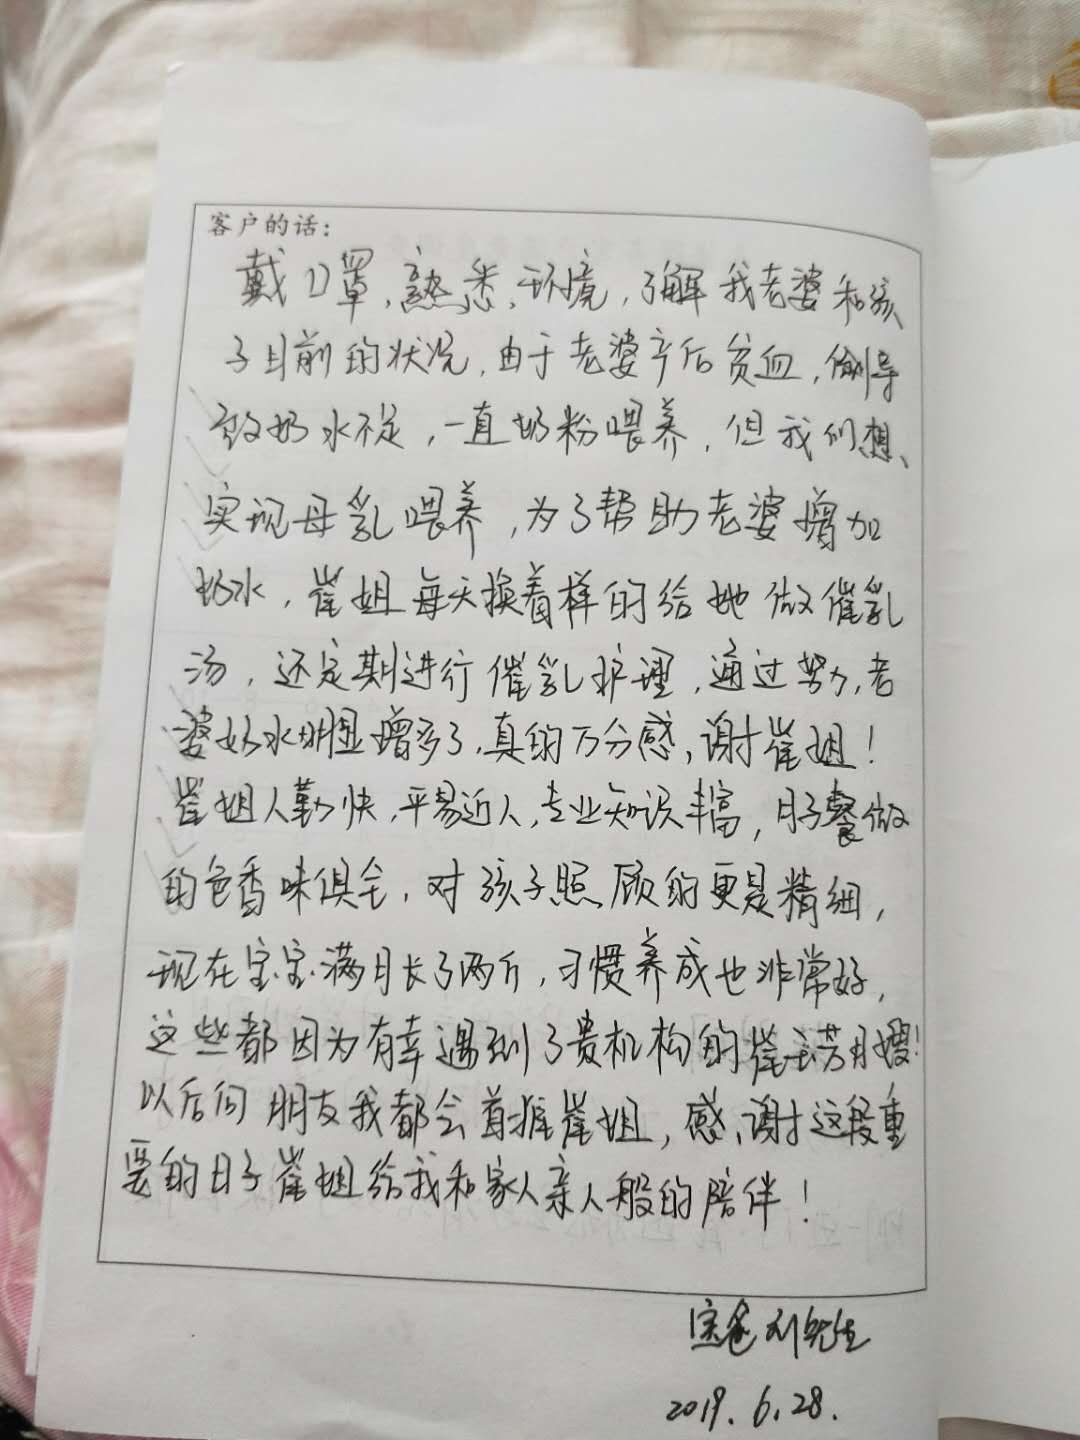 客户的话：
戴口罩，熟悉环境，了解我老婆和孩
子目前的状况，由于老婆产后贫血，导
致奶水不足，一直奶粉喂养，但我们想
实现母乳喂养，为了帮助老婆增加
奶水，崔姐每天换着样的给她做催乳
汤，还定期进行催乳护理，通过努力，老
婆奶水明显增多了，真的万分感谢崔姐！
崔姐人勤快，平易近人，专业知识丰富，月子餐做
的色香味俱全，对孩子照顾的更是精细，
现在宝宝满月长了两斤，习惯养成也非常好，
这些都因为有幸遇到了贵机构的崔玉芳月嫂！
以后问朋友我都会首推崔姐，感谢这段重
要的日子崔姐给我和家人亲人般的陪伴！
宝爸刘先生
2019.6.28.